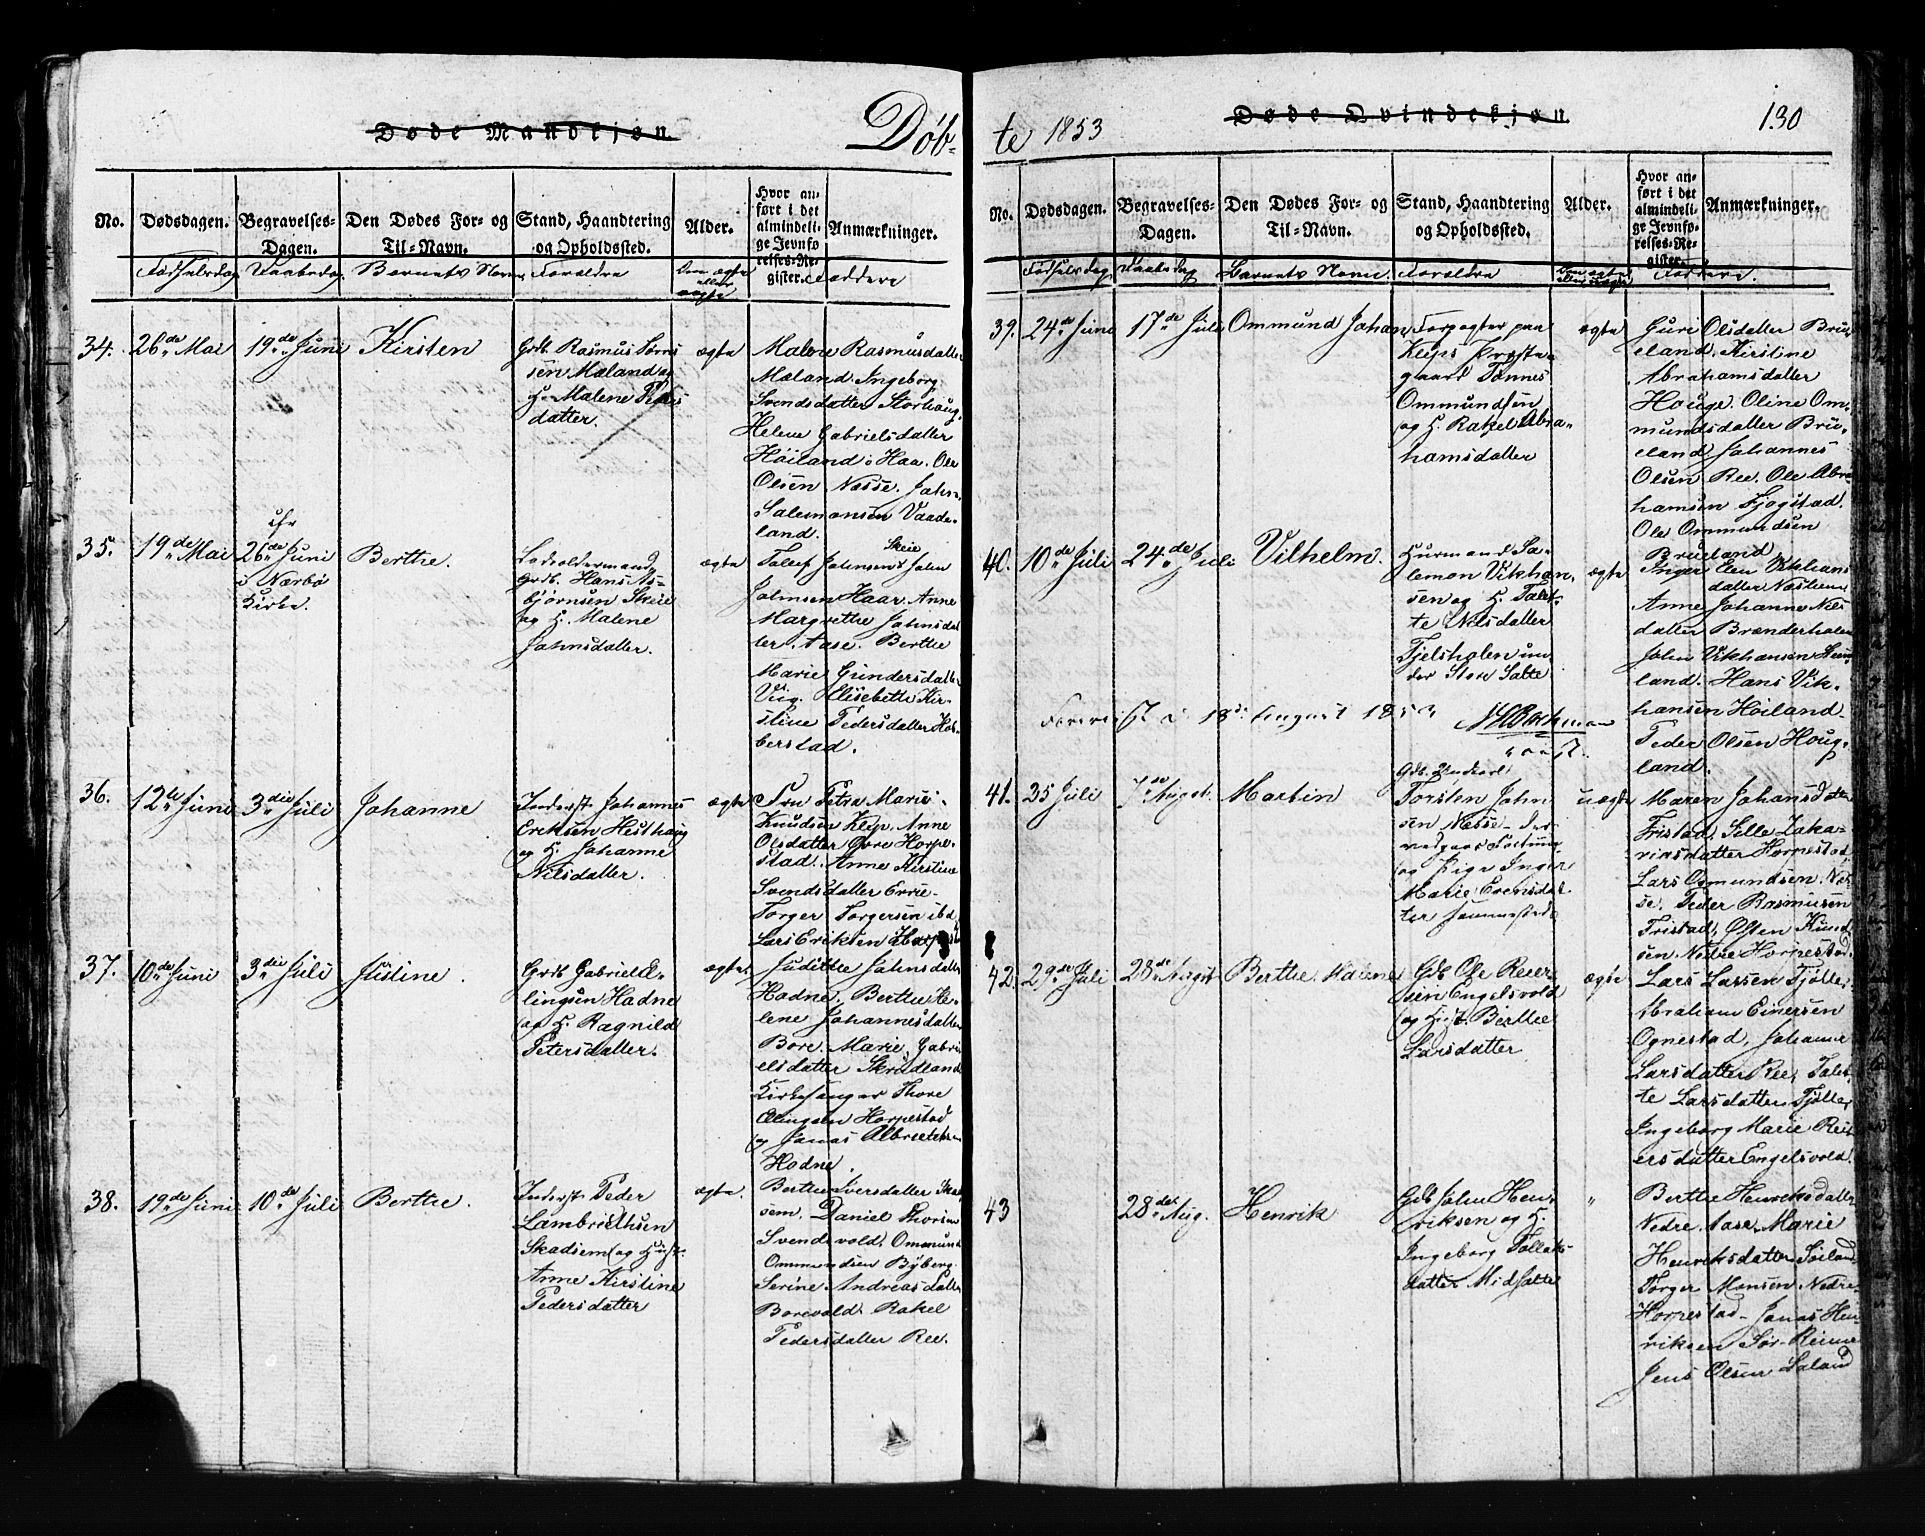 Døde Mandkjøn
Døb-
No.
Dødsdagen.
Begravelses-
Dagen.
Den Dødes For- og
Til-Navn.
Stand, Haandtering
og Opholdssted.
Alder.
Hvor an-
ført i det
almindeli-
ge Jevnfø-
relses-Re-
gister.
Anmærkninger.
Fødselsdag
Daabsdag
Barnets Navn
Forældre
Om ægte
eller
uægte
Faddere
34.
26de Mai
19de Juni
Kirsten
Grdb. Rasmus Sørns
sen Mæland og
H. Malene Peders
datter.
ægte
Malene Rasmusdatter
Mæland. Ingeborg
Svendsdatter Storhoug.
Helene Gabrielsdatter
Höiland i Haa. Ole
Olsen Næsse. John
Salemonsen Vaade-
land.
35.
19de Mai
26de Juni
i Nærbø
Kirke.
Berthe.
Ladvoldermand
Grdb. Hans As-
bjørnsen Skeie
og H. Malene
Jahnsdatter.
ægte
Tolef Johnsen Skeie John
Johnsen Haar. Anne
Margrethe Johnsdat-
ter. Aase. Berthe
Marie Gundersdatter
Vig. Elisebethe Kir-
stine Pedersdatter Hob-
berstad.
36.
12te Juni
3die Juli
Johanne
Inderst Johannes
Eriksen Hesthaug
og H. Johanne
Nilsdatter.
ægte
Fru Petra Marie
Knudsen Klep. Anne
Olsdatter Øvre Horpe-
stad. Anne Kirstine
Svendsdatter Erre-
Torger Torgersen ibd.
Lars Eriksen Horpest
37.
10de Juni
3die Juli
Justine
Grdb Gabriel E-
lingsen Hodne
og H. Ragnild
Petersdatter.
ægte
Judithe Jahnsdatter
Hodne. Berthe He-
lene Johannesdatter
Bore. Marie Gabri-
elsdatter Skrudland
Kirkesanger Thore
Ellingsen Horpestad
og Jonas Albrectsen
Hodne.
38.
19de Juni
10de Juli
Berthe.
Inderst Peder
Lambrethsen
Skadsem og Hust.
Anne Kirstine
Pedersdatter
ægte.
Berthe Iversdatter Skad
sem. Daniel Thorsen
Svendsvold. Ommund
Ommundsen Byberg.
Serine Andreasdatter
Borevold. Rakel
Pedersdatter Ree.
te 1853
Døde Qvindekjøn
130
No.
Dødsdagen.
Begravelses-
Dagen.
Den Dødes For- og
Til-Navn.
Stand, Haandtering
og Opholdssted.
Alder.
Hvor an-
ført i det
almindeli-
ge Jevnfø-
relses-Re-
gister.
Anmærkninger.
Fødselsdag
Daabsdag
Barnets Navn.
Forældre
Om ægte
eller uægte
Faddere.
39.
24de Juni
17de Juli
Ommund Johan
Forpagter paa
Kleps Præste-
gaard Tønnes
Ommundsen
og H. Rakel Abra-
hamsdatter
ægte
Guri Olsdatter Bru-
eland. Kirstine
Abrahamsdatter
Houge. Oline Om-
mundsdatter Bru-
eland Johannes
Olsen Ree. Ole Abra-
hamsen Fjogstad.
Ole Ommundsen
Brueland
40.
10de Juli
24de Juli
Vilhelm.
Huusmand Sa-
lemon Vikhan-
sen og H. Talet-
te Nilsdatter
Tjelshølen un-
der Store Salte
ægte
Inger Elen Vikhans
datter Næsheim
Anne Johanne Niels
datter Brænderhølen
John Vikhansen
land. Hans Vik-
hansen Höiland
Peder Olsen Houg-
land.
Foreviist d. 18de August 1853
41.
25 Juli
7de August.
Martin
Gdb. Ungkarl
Torsten John
sen Næsse.
og Pige Inger
Marie Evensdat-
ter
uægte
Maren Johansdatter
Fristad. Sille Zaka-
riasdatter Horpestad.
Lars Osmundsen Næs-
se. Peder Rasmusen
Fristad. Østen Knud
sen Nedre Horpestad.
42.
29de Juli
28de August
Berthe Malene
Gdb Ole Reier-
sen Engelsvold
og Hst. Berthe
Larsdatter
ægte
Lars Larsen Tjøtte,
Abraham Einersen
Ognestad, Johanne
Larsdatter Ree, Talet-
te Larsdatter Tjøtte,
Ingeborg Marie Rei-
ersdatter Engelsvold.
43
28de Aug.
Henrik
Gdb John Hen-
riksen og H.
Ingeborg Tollaks-
datter Midsalte
"
Berthe Henriksdatter
Nedre Aase. Marie
Henriksdatter Soeland
Torger Monsen Nedre
Horpestad. Jonas Hen-
riksen Sør-Reime
Jens Olsen Laland